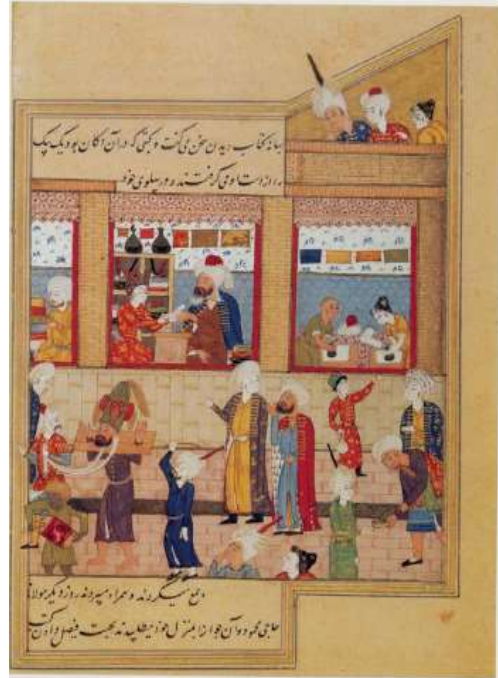 بهانه کتاب دیدن سخن می گفت و کتبی که در آن دکان بود یک یک
را از استا و می گرفتند و در پهلوی خود
جمع میکردند و همراه میبردند روز دیگر مولانا
حاجی محمود آن جوانرا بمنزل خود میطلبیدند بجهت فیصل دادن کتب